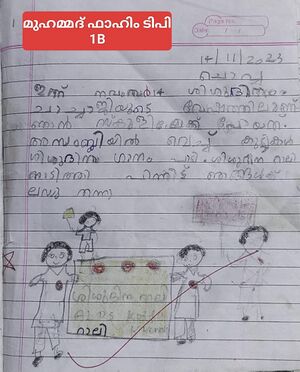 മുഹമ്മദ് ഫാഹിം ടിപി
1B
Date:
14/11/2023
ചൊവ്വ
ഇന്ന് നവംബർ14 ശിശുദിനം
ചാച്ചാജിയുടെ വേഷത്തിലാണ്
ഞാൻ സ്കൂളിലേക്ക് പോയത്.
അസംബ്ലിയിൽ വെച്ച് കുട്ടികൾ
ശിശുദിന ഗാനം പാടി. ശിശുദിന റാലി
നടത്തി പിന്നീട് ഞങ്ങൾക്ക്
ലഡു തന്നു
ശിശുദിന റാലി
റാലി